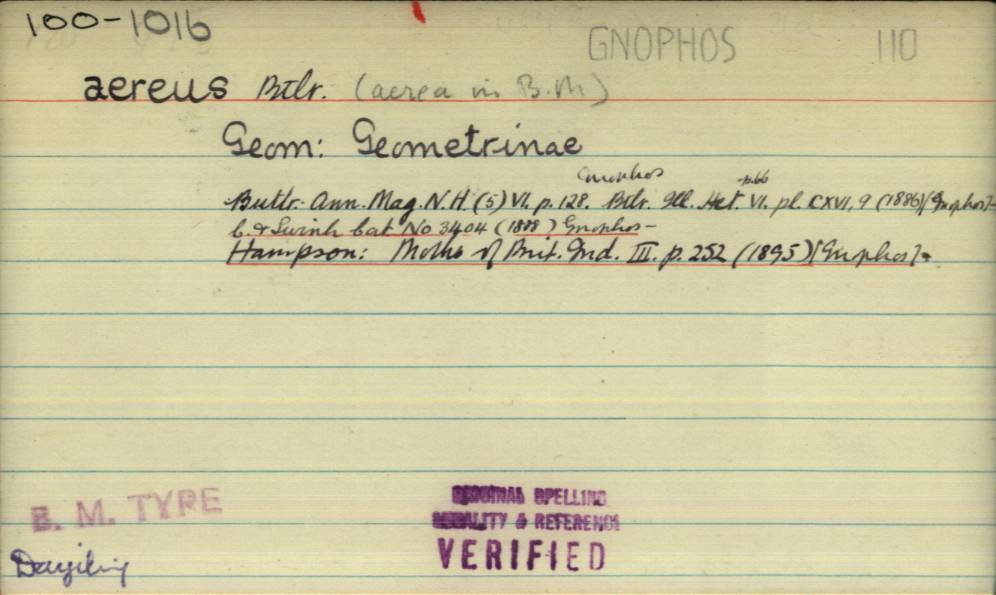 100-1016
GNOPHOS 110
aereus Btlr. (aerea in B.M)
Geom: Geometrinae
Gnophos p.66
Butlr. Ann. Mag. N.H (5) VI. p. 128. Btlr. Ill. Het. VI. pl. CXVI, 9 (1886) [Gnophos]-
C. & Swinh Cat No 3404 (1888) Gnophos -
Hampson: Moths of Brit. Ind. III. p. 252 (1895) [Gnophos]-
B. M. TYPE
ORIGINAL SPELLING
LOCALITY & REFERENCE
VERIFIED
Darjiling